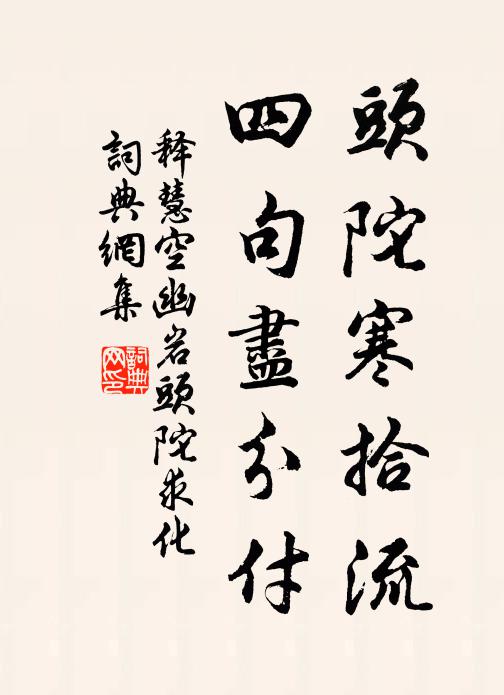 頭陀寒拾流
四句盡分付
释慧空幽岩頭陀求化
詞典網集
詞典网印